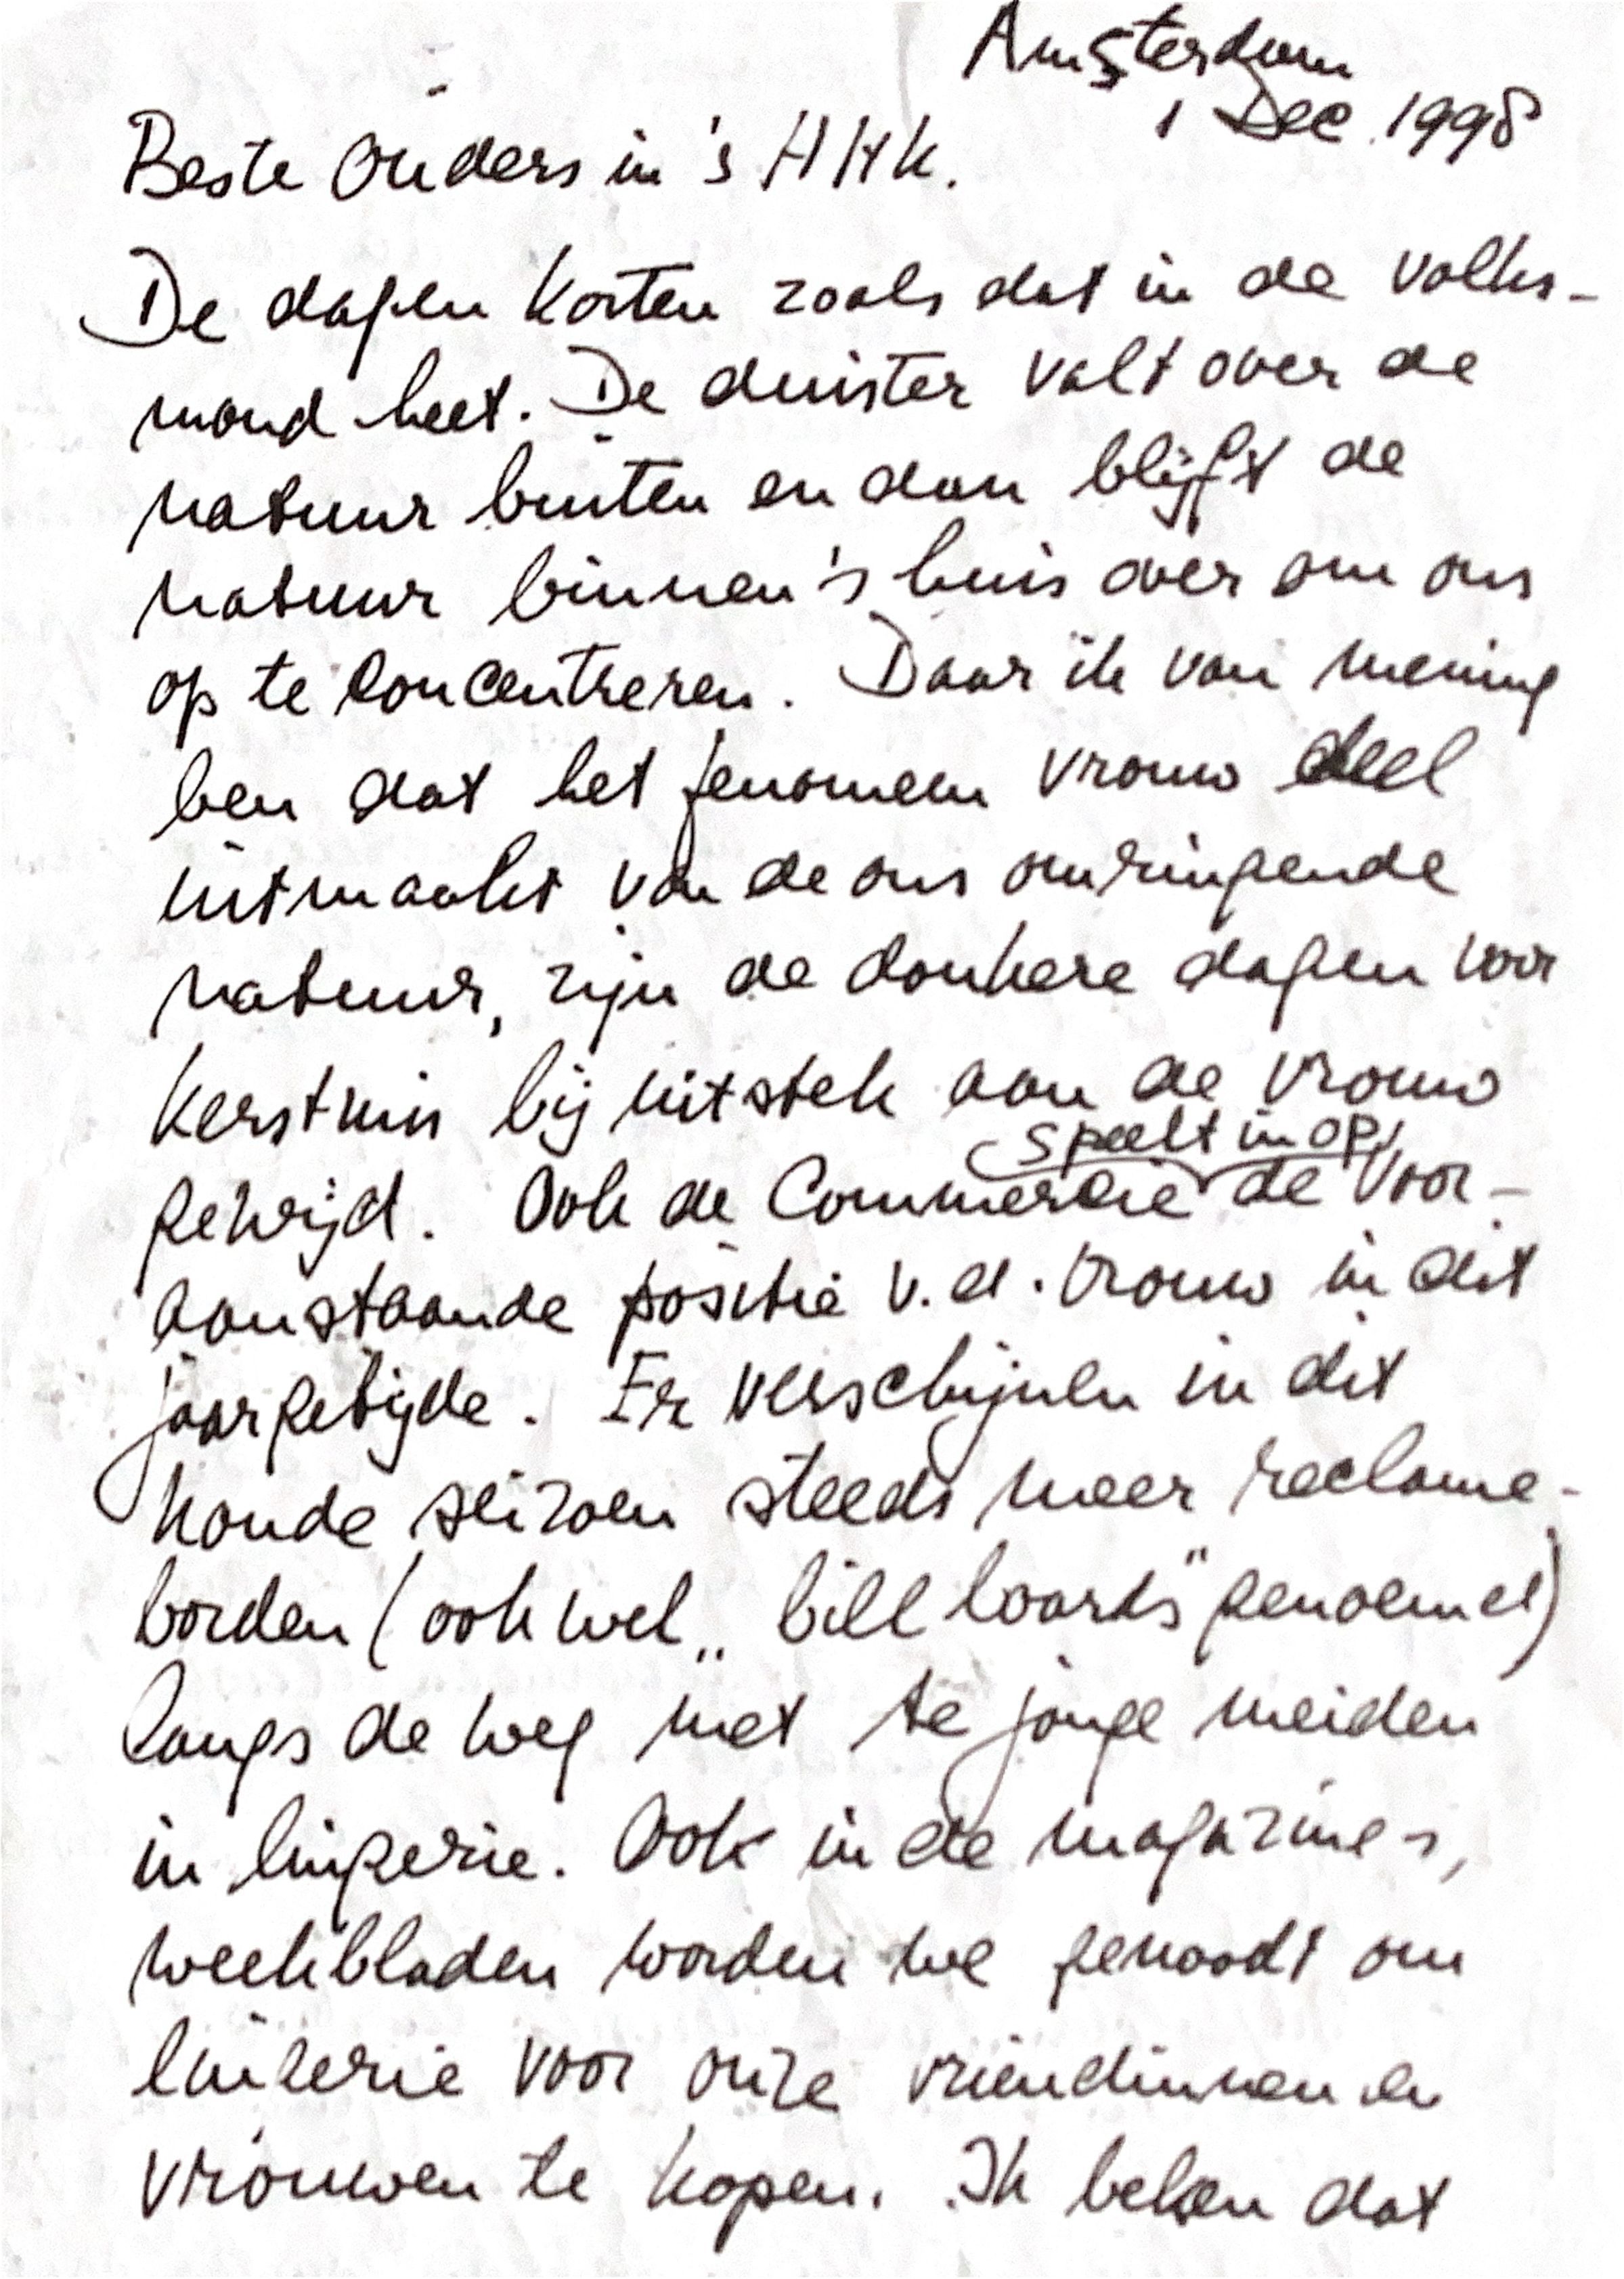 Amsterdam
1 Dec. 1998
Beste Ouders in 's HHK.
De dagen korten zoals dat in de volks-
mond heet. De duister valt over de
natuur buiten en dan blijft de
natuur binnen's huis over om ons
op te concentreren. Daar ik van mening
ben dat het fenomeen vrouw deel
uitmaakt van de ons omringende
natuur, zijn de donkere dagen voor
Kerstmis bij uitstek aan de vrouw
speelt in op
gewijd. Ook de Commercie de voor-
aanstaande positie v.d. vrouw in dit
jaargetijde. Er verschijnen in dit
koude seizoen steeds meer reclame-
borden (ook wel „billboards" genoemd)
langs de weg met te jonge meiden
in lingerie. Ook in de magazines,
weekbladen worden we genoodt om
lingerie voor onze vriendinnen en
vrouwen te kopen. Ik beken dat